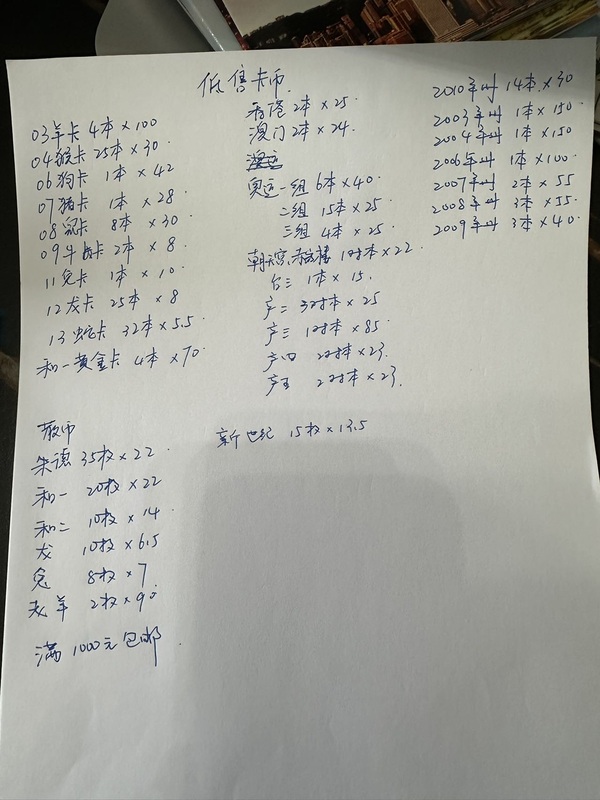 低售卡币
03羊卡 4本×100
04猴卡 25本×30
06狗卡 1本×42
07猪卡 1本×28
08鼠卡 8本×30
09牛卡 2本×8
11兔卡 1本×10
12龙卡 25本×8
13蛇卡 32本×5.5
和一黄金卡 4本×70
香港 2本×25
澳门 2本×24
奥运一组 6本×40
二组 15本×25
三组 4本×25
朝天宫,赤嵌楼 1对本×22
台三 1本×15
产二 3对本×25
产三 1对本×85
产四 2对本×23
产五 2对本×23
2010年册 14本×30
2003年册 1本×150
2004年册 1本×150
2006年册 1本×100
2007年册 2本×55
2008年册 3本×55
2009年册 3本×40
散币
朱德 35枚×22
和一 20枚×22
和二 10枚×14
龙 10枚×6.5
兔 8枚×7
羊 2枚×90
满1000元包邮
新世纪 15枚×13.5